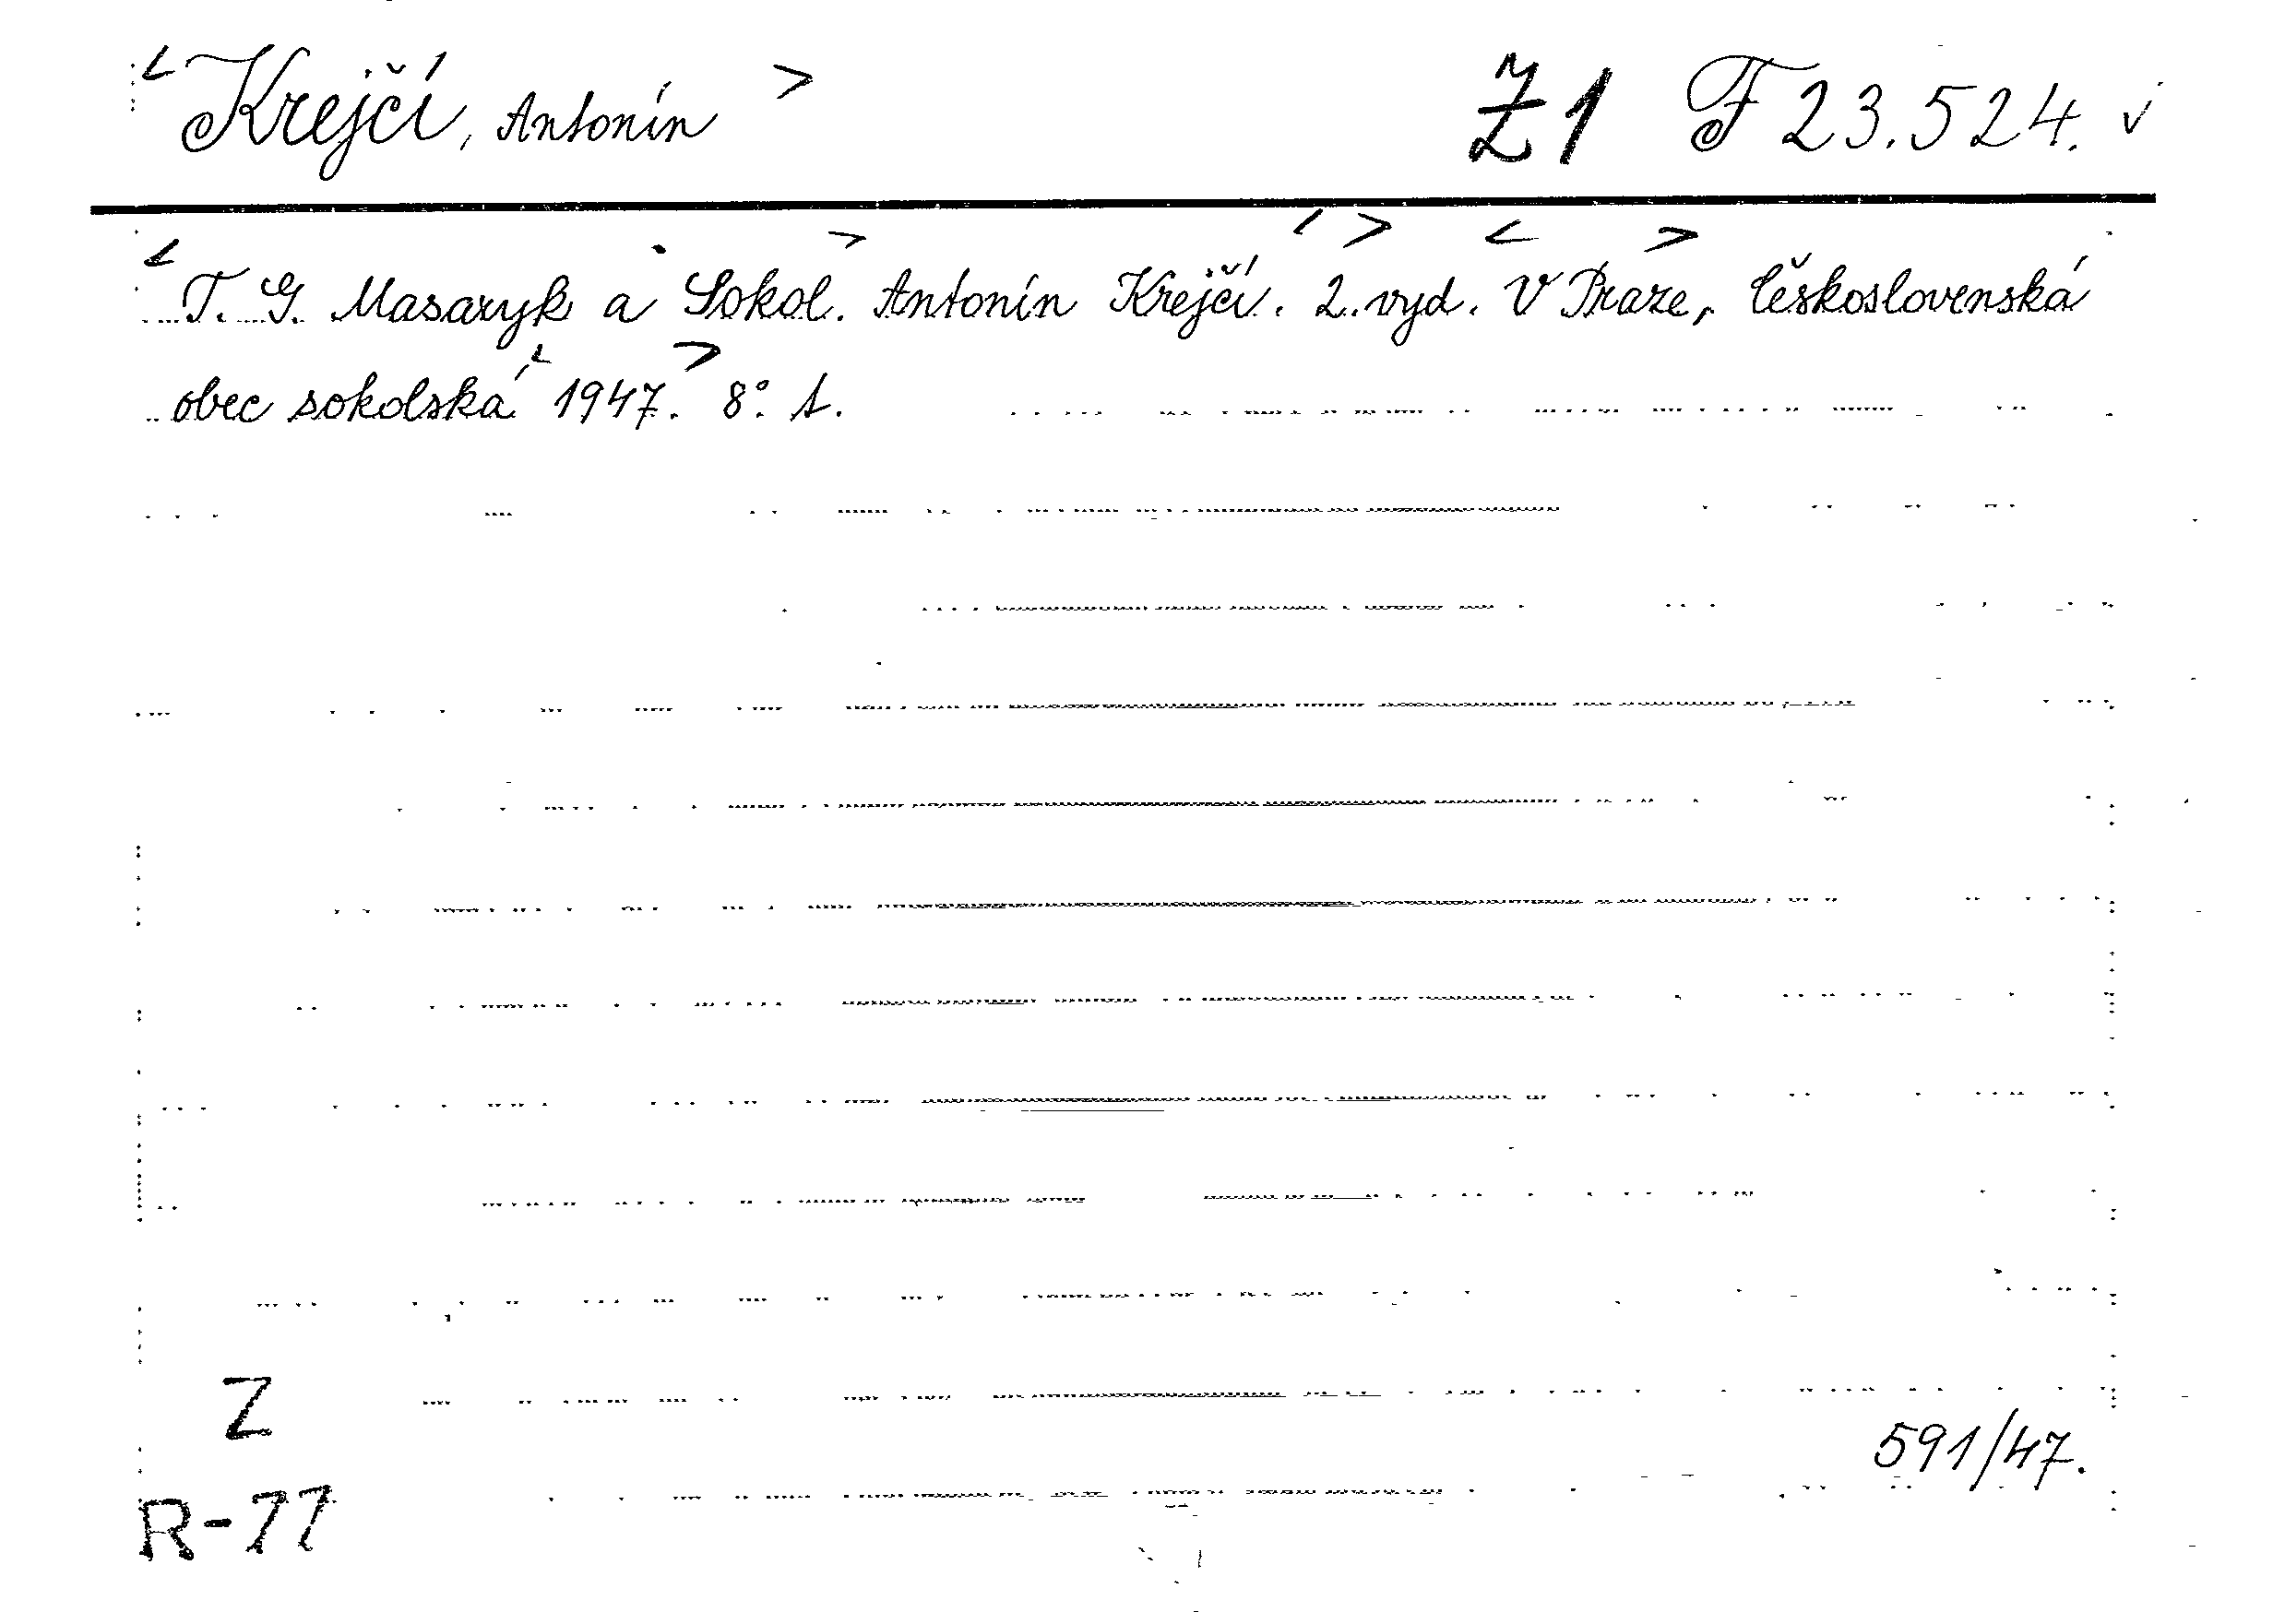 <Krejčí, Antonín> Ž1 F 23.524. v
<T. G. Masaryk a Sokol.> Antonín Krejčí.> 2. vyd. <V Praze,> Československá
obec sokolská <1947.> 8°. s.
Z
591/47.
R-77